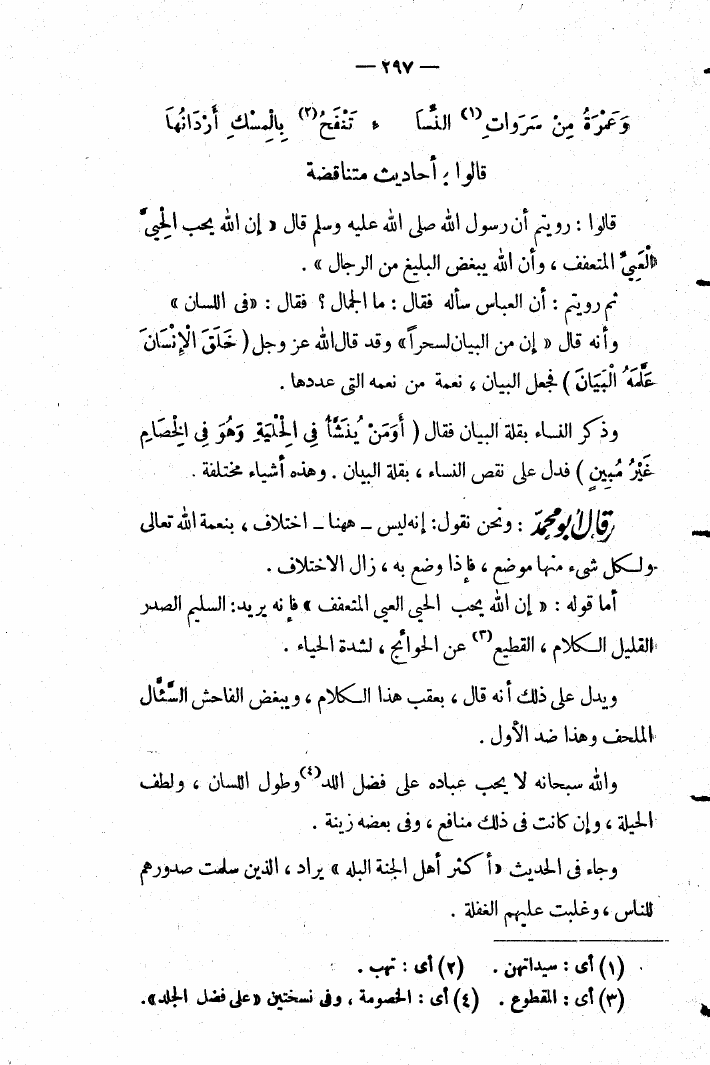 — ٢٩٧ —
وَعَمْرَةُ مِنْ سَرَوَاتِ(١) النِّسَا ءِ تَنْفَحُ(٢) بِالْمِسْكِ أَرْدَانُهَا
قالوا : أحاديث متناقضة
قالوا : رويتم أن رسول الله صلى الله عليه وسلم قال « إن الله يحب الْحَيِيَّ
الْعَيِيَّ المتعفف ، وأن الله يبغض البليغ من الرجال » .
ثم رويتم : أن العباس سأله فقال : ما الجمال ؟ فقال : «فى اللسان »
وأنه قال « إن من البيان لسحراً » وقد قال الله عز وجل ( خَلَقَ الْإِنْسَانَ
عَلَّمَهُ الْبَيَانَ ) فجعل البيان ، نعمة من نعمه التى عددها .
وذكر النساء بقلة البيان فقال ( أَوَمَنْ يُنَشَّأُ فِي الْحِلْيَةِ وَهُوَ فِي الْخِصَامِ
غَيْرُ مُبِينٍ ) فدل على نقص النساء ، بقلة البيان . وهذه أشياء مختلفة .
قال أبو محمد : ونحن نقول : إنه ليس – ههنا – اختلاف ، بنعمة الله تعالى
ولكل شىء منها موضع ، فإذا وضع به ، زال الاختلاف .
أما قوله : « إن الله يحب الحيى العيى المتعفف » فإنه يريد : السليم الصدر
القليل الكلام ، القطيع(٣) عن الحوائج ، لشدة الحياء .
ويدل على ذلك أنه قال ، بعقب هذا الكلام ، ويبغض الفاحش السَّئَّال
الملحف وهذا ضد الأول .
والله سبحانه لا يحب عباده على فضل اللد(٤) وطول اللسان ، ولطف
الحيلة ، وإن كانت فى ذلك منافع ، وفى بعضه زينة .
وجاء فى الحديث « أكثر أهل الجنة البله » يراد ، الذين سلمت صدورهم
للناس ، وغلبت عليهم الغفلة .
(١) أى : سيداتهن . (٢) أى : تهب .
(٣) أى : المقطوع . (٤) أى : الخصومة ، وفى نسختين «على فضل الجلد».